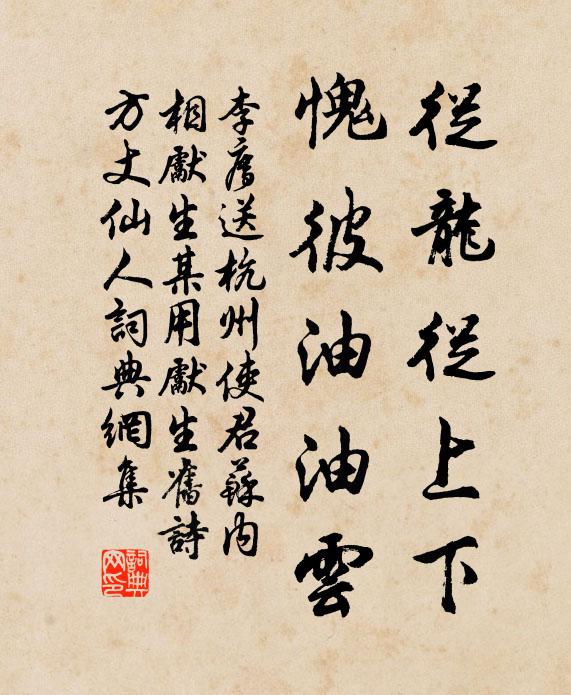 從龍從上下
愧彼油油雲
李廌送杭州使君蘇內
相獻生某用獻生舊詩
方丈仙人詞典網集
詞典网印